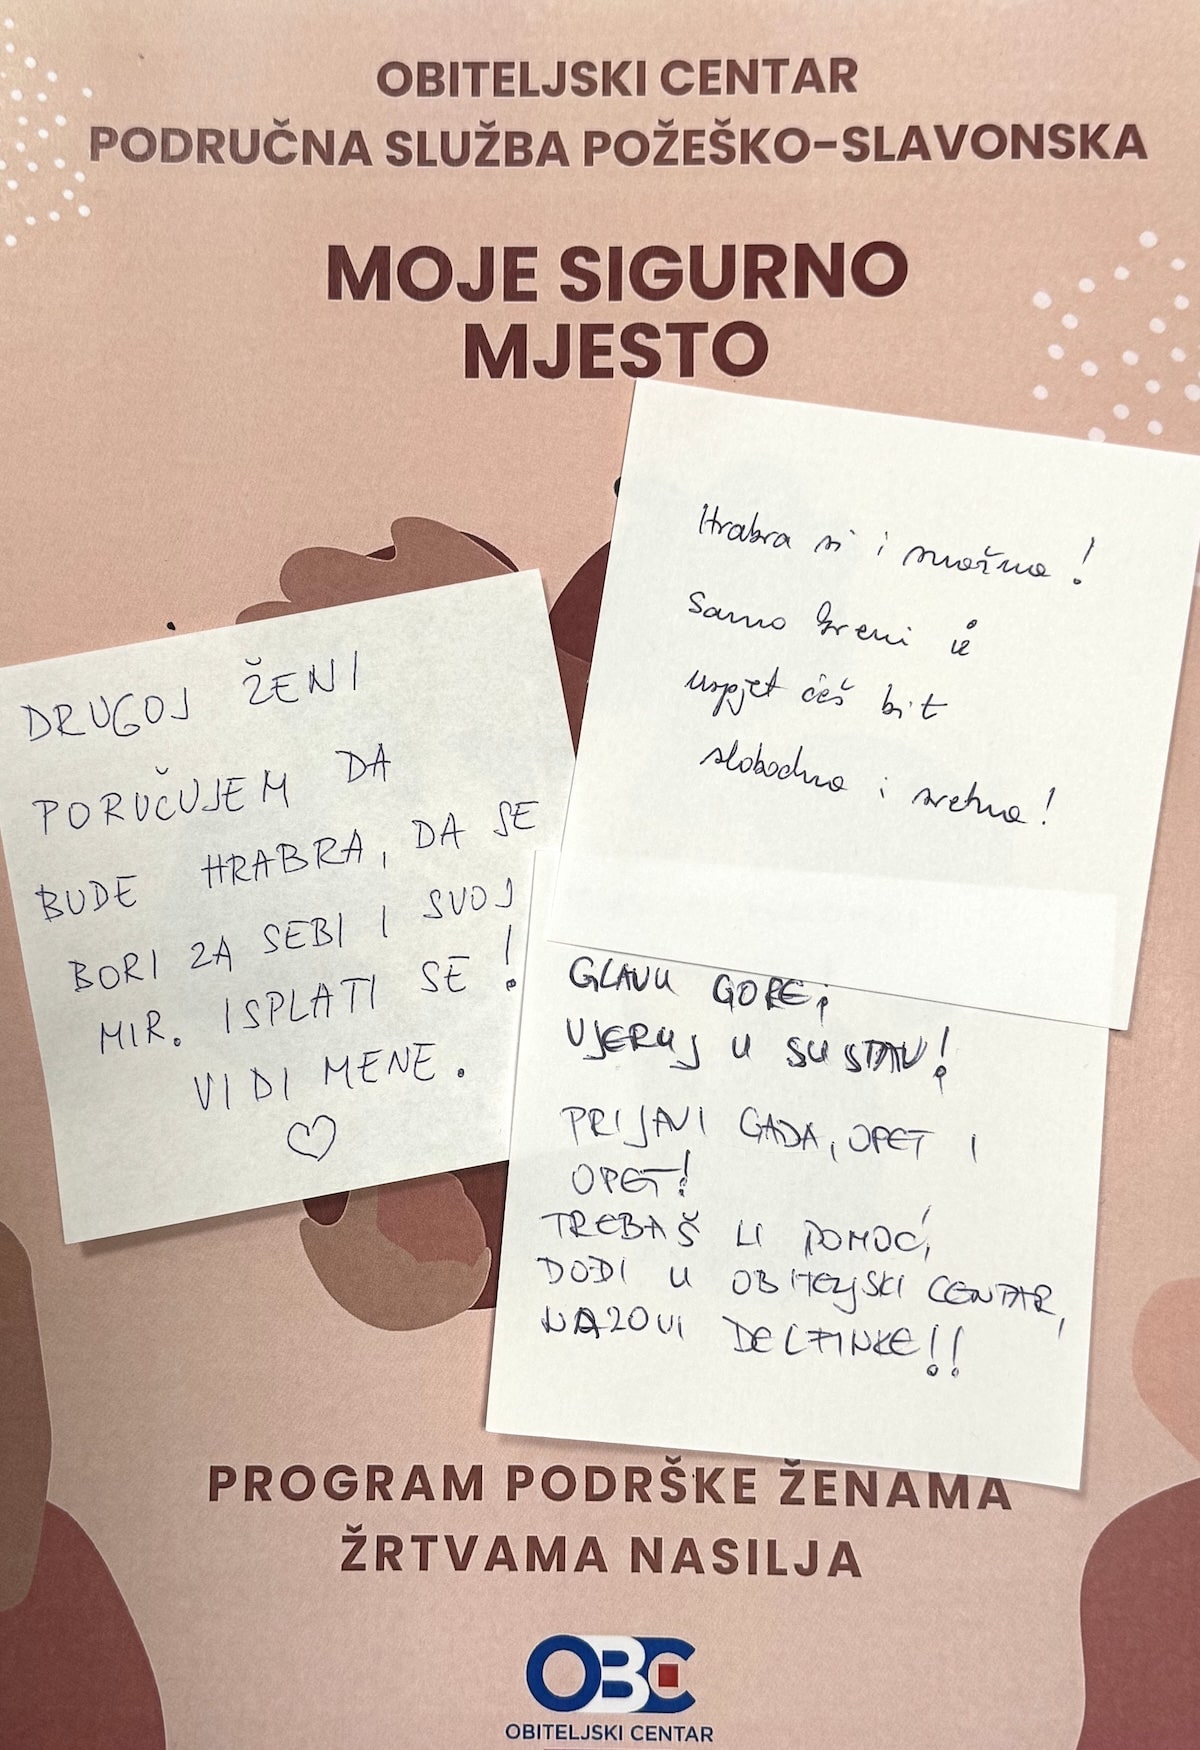 OBITELJSKI CENTAR
PODRUČNA SLUŽBA POŽEŠKO-SLAVONSKA
MOJE SIGURNO
MJESTO
Hrabra si i snažna!
Samo kreni i
uspjet ćeš bit
slobodna i sretna!
DRUGOJ ŽENI
PORUČUJEM DA
BUDE HRABRA, DA SE
BORI ZA SEBI I SVOJ
MIR. ISPLATI SE!
VIDI MENE.
GLAVU GORE,
VJERUJ U SUSTAV!
PRIJAVI GADA, OPET I
OPET!
TREBAŠ LI POMOĆ,
DOĐI U OBITELJSKI CENTAR,
NAZOVI DELFINKE!!
PROGRAM PODRŠKE ŽENAMA
ŽRTVAMA NASILJA
OBC
OBITELJSKI CENTAR